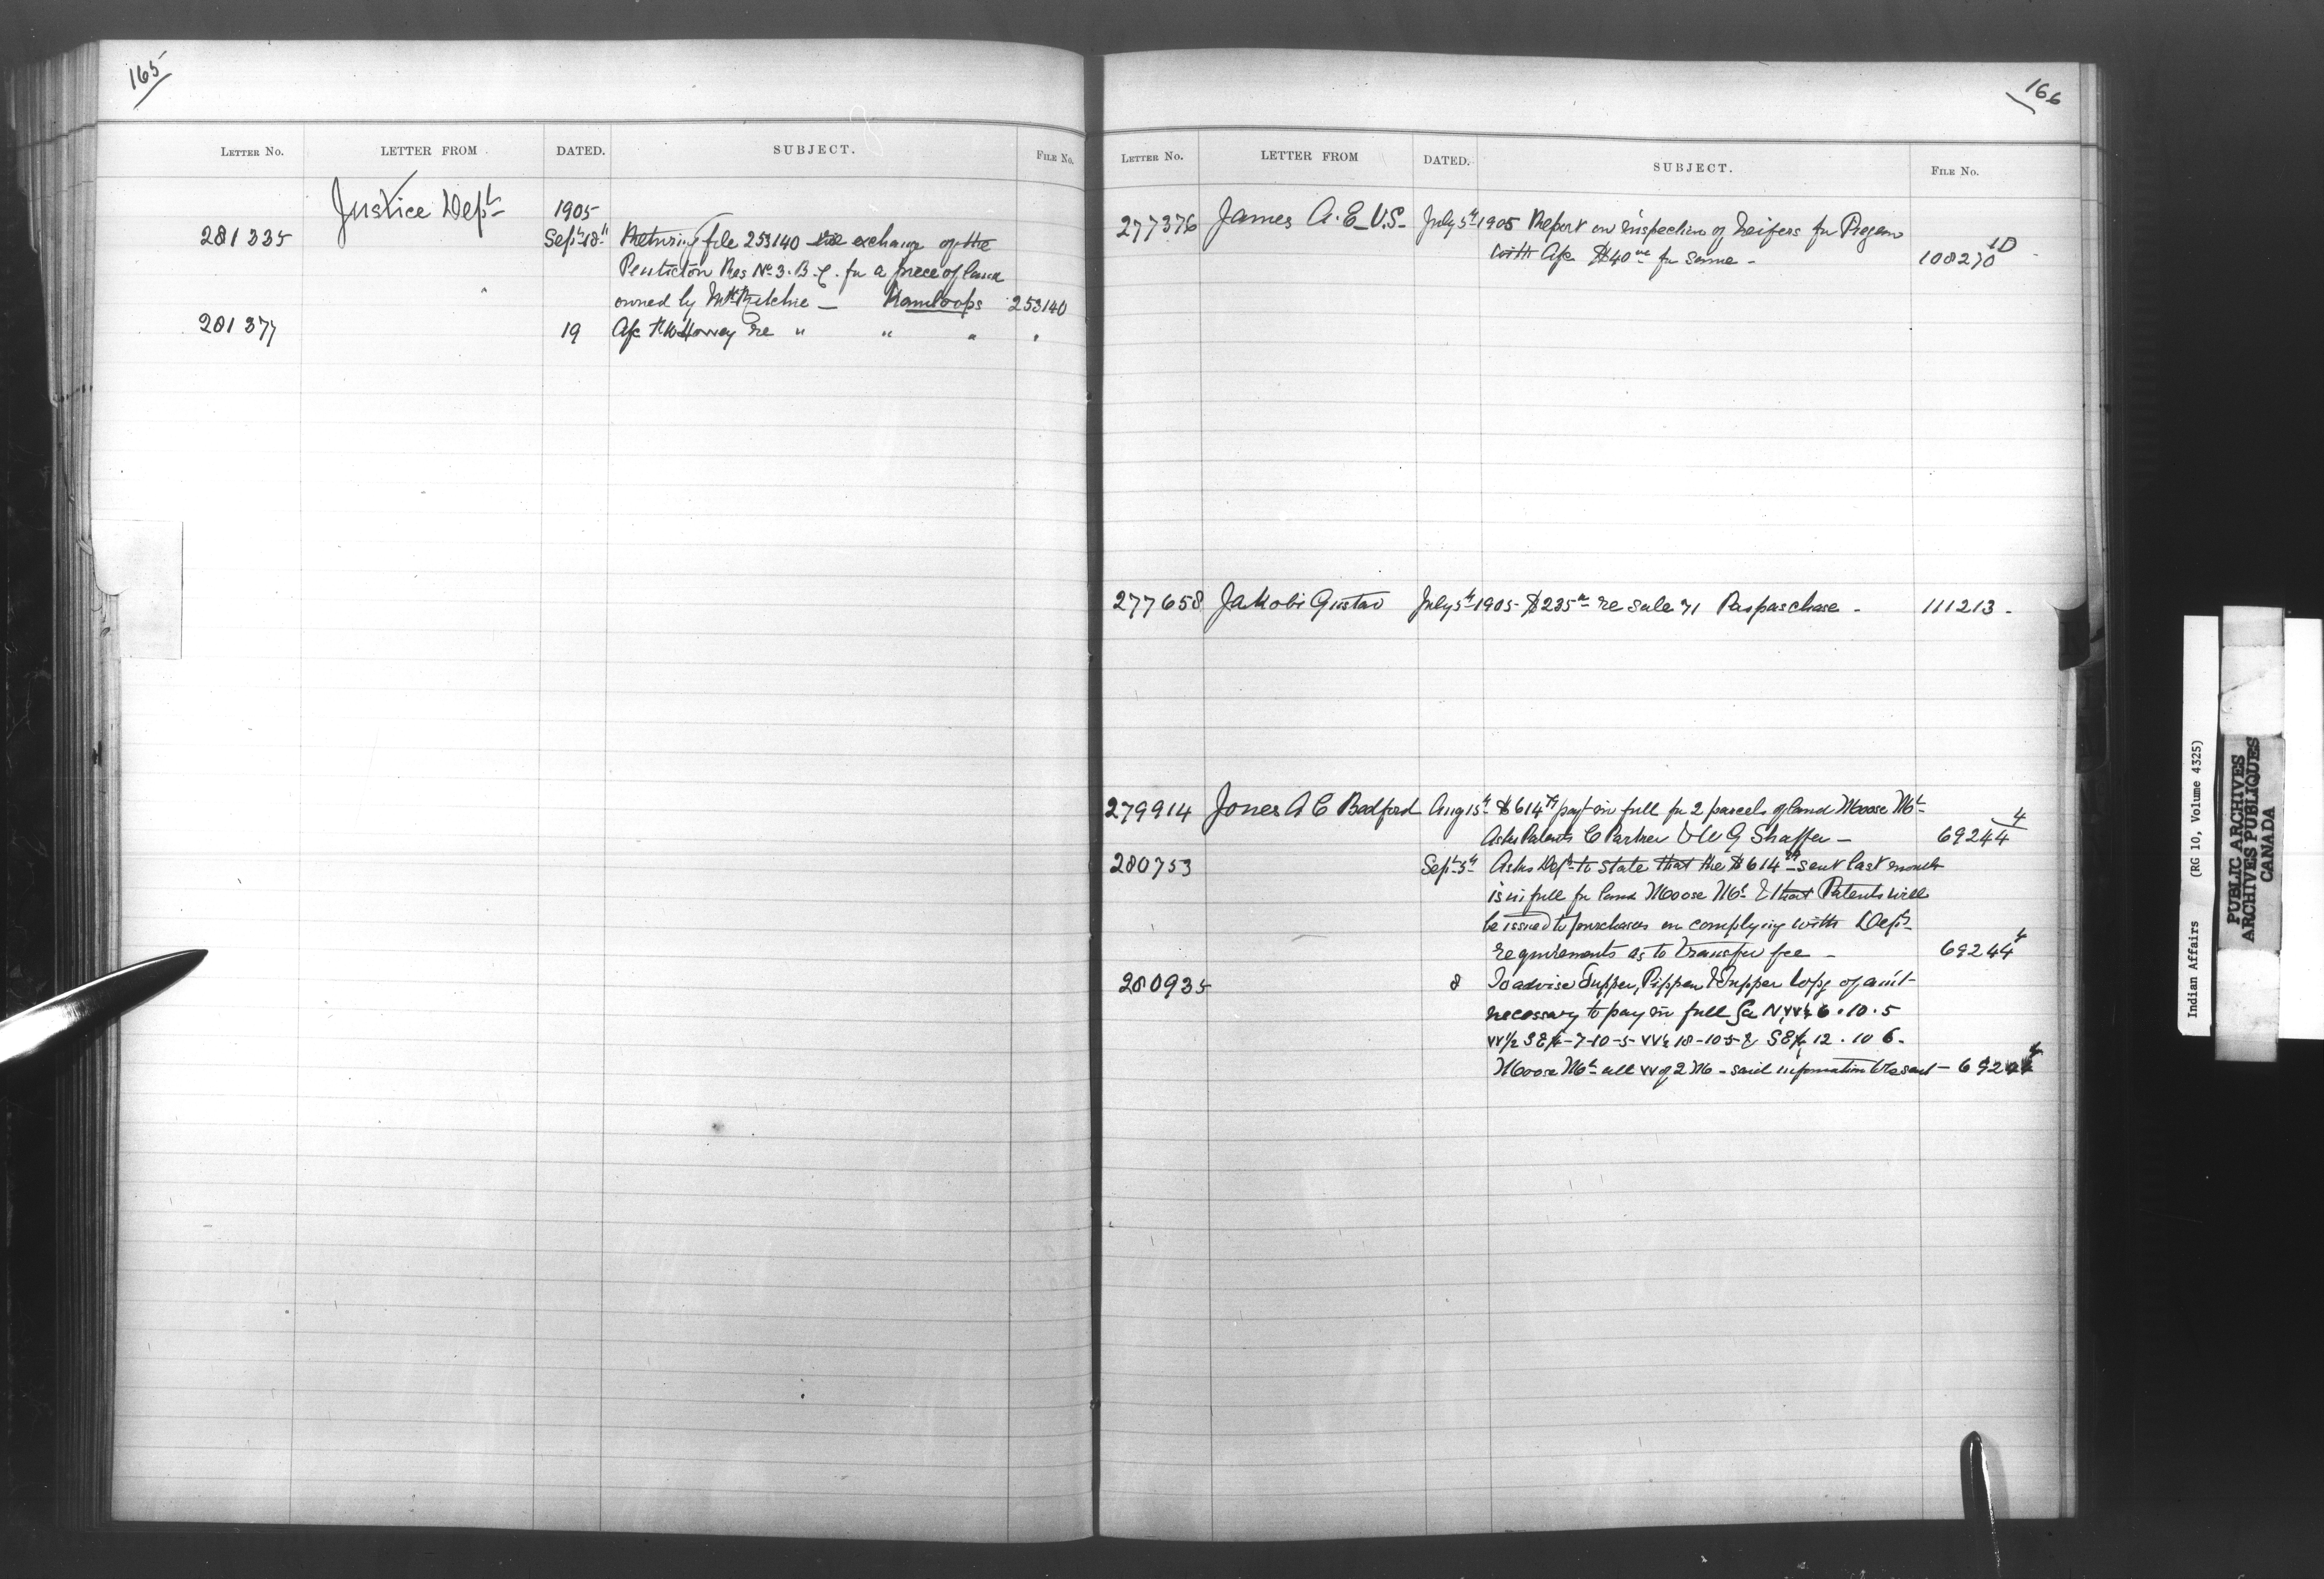 165
LETTER NO. LETTER FROM DATED. SUBJECT. FILE No.
Justice Dept 1905
281335 Sept 18th Returning file 253140 re exchange of the
Penticton Res No 3. B.C. for a piece of land
owned by Mr Ritchie — Kamloops 253140
281377 19 re " " " "
166
LETTER NO. LETTER FROM DATED. SUBJECT. FILE No.
277376 James A. E V.S. July 5th 1905 Report on inspection of heifers for Piegan
with a/c $40 00 for same - 108270 1D
277658 Jakobi Gustav July 5th 1905 $235 re sale 71 Paspaschase - 111213 -
279914 Jones A C Bedford Aug 15th $614 payt in full for 2 parcels of land Moose Mt
Asks Patents C Partner & W G Shaffer — 69244 4
280753 Sept 5th Asks Dept to State that the $614 sent last month
is in full for land Moose Mt & that Patents will
be issued to purchasers on complying with Dept
requirements as to transfer fee - 69244 4
280935 8 To advise Tupper, Pippen & Tupper Wpg of amt
necessary to pay in full for NW¼ 6.10.5
W½ SE¼-7-10-5 W½ 18-10-5 & SE¼ 12.10 6.
Moose Mt all W of 2 M - said information - 69244 4
Indian Affairs (RG 10, Volume 4325)
PUBLIC ARCHIVES
ARCHIVES PUBLIQUES
CANADA